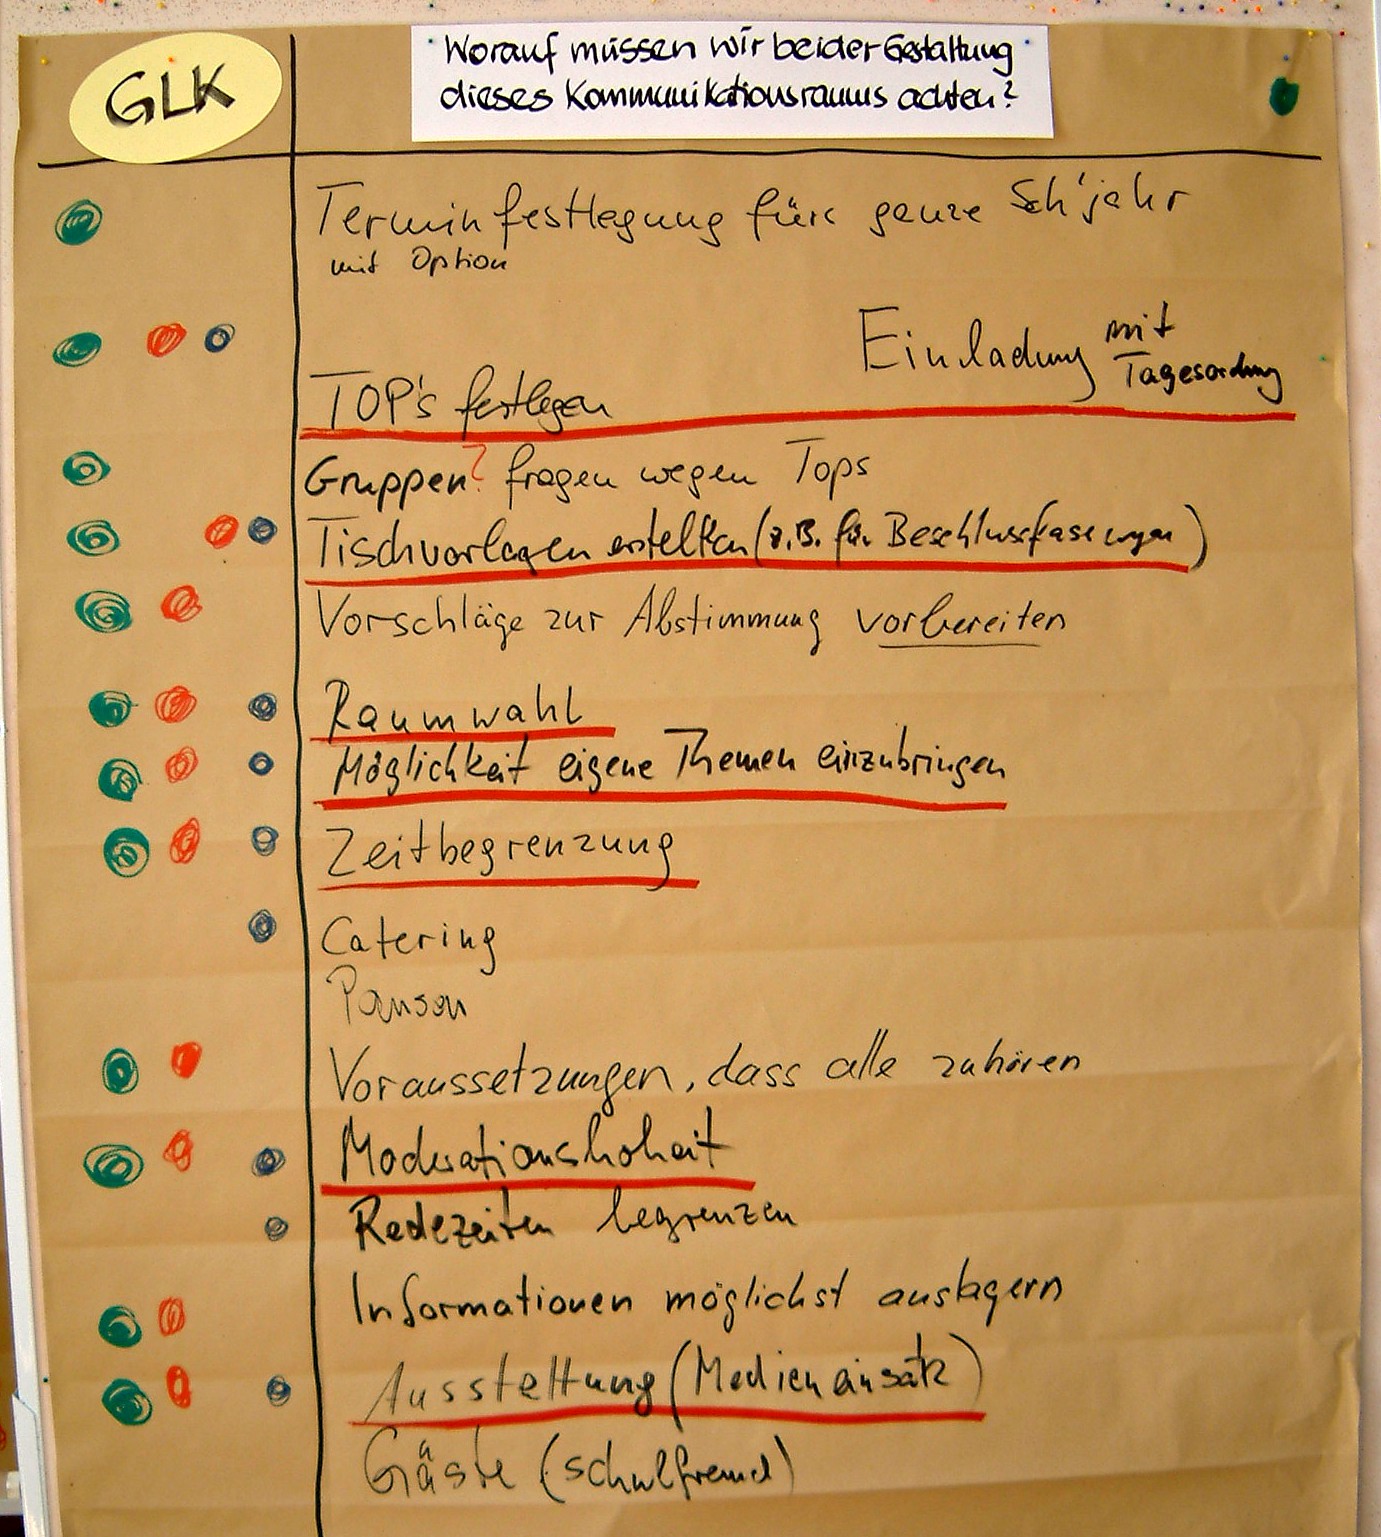 GLK
Worauf müssen wir bei der Gestaltung
dieses Kommunikationsraums achten?
Terminfestlegung fürs ganze Sch'jahr
mit Option
Einladung mit
Tagesordnung
TOP's festlegen
Gruppen? fragen wegen Tops
Tischvorlagen erstellen (z.B. für Beschlussfassungen)
Vorschläge zur Abstimmung vorbereiten
Raumwahl
Möglichkeit eigene Themen einzubringen
Zeitbegrenzung
Catering
Pausen
Voraussetzungen, dass alle zuhören
Moderationshoheit
Redezeiten begrenzen
Informationen möglichst auslagern
Ausstattung (Medieneinsatz)
Gäste (schulfremd)